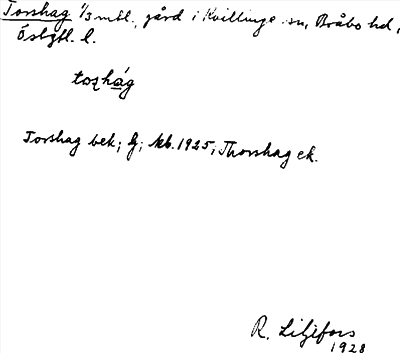 Torshag 1/3 mtl., gård i Kvillinge sn, Bråbo hd,
Östgtl. l.
toshág
Torshag bek; g; kb. 1925; Thorshag ek.
R. Liljefors
1928